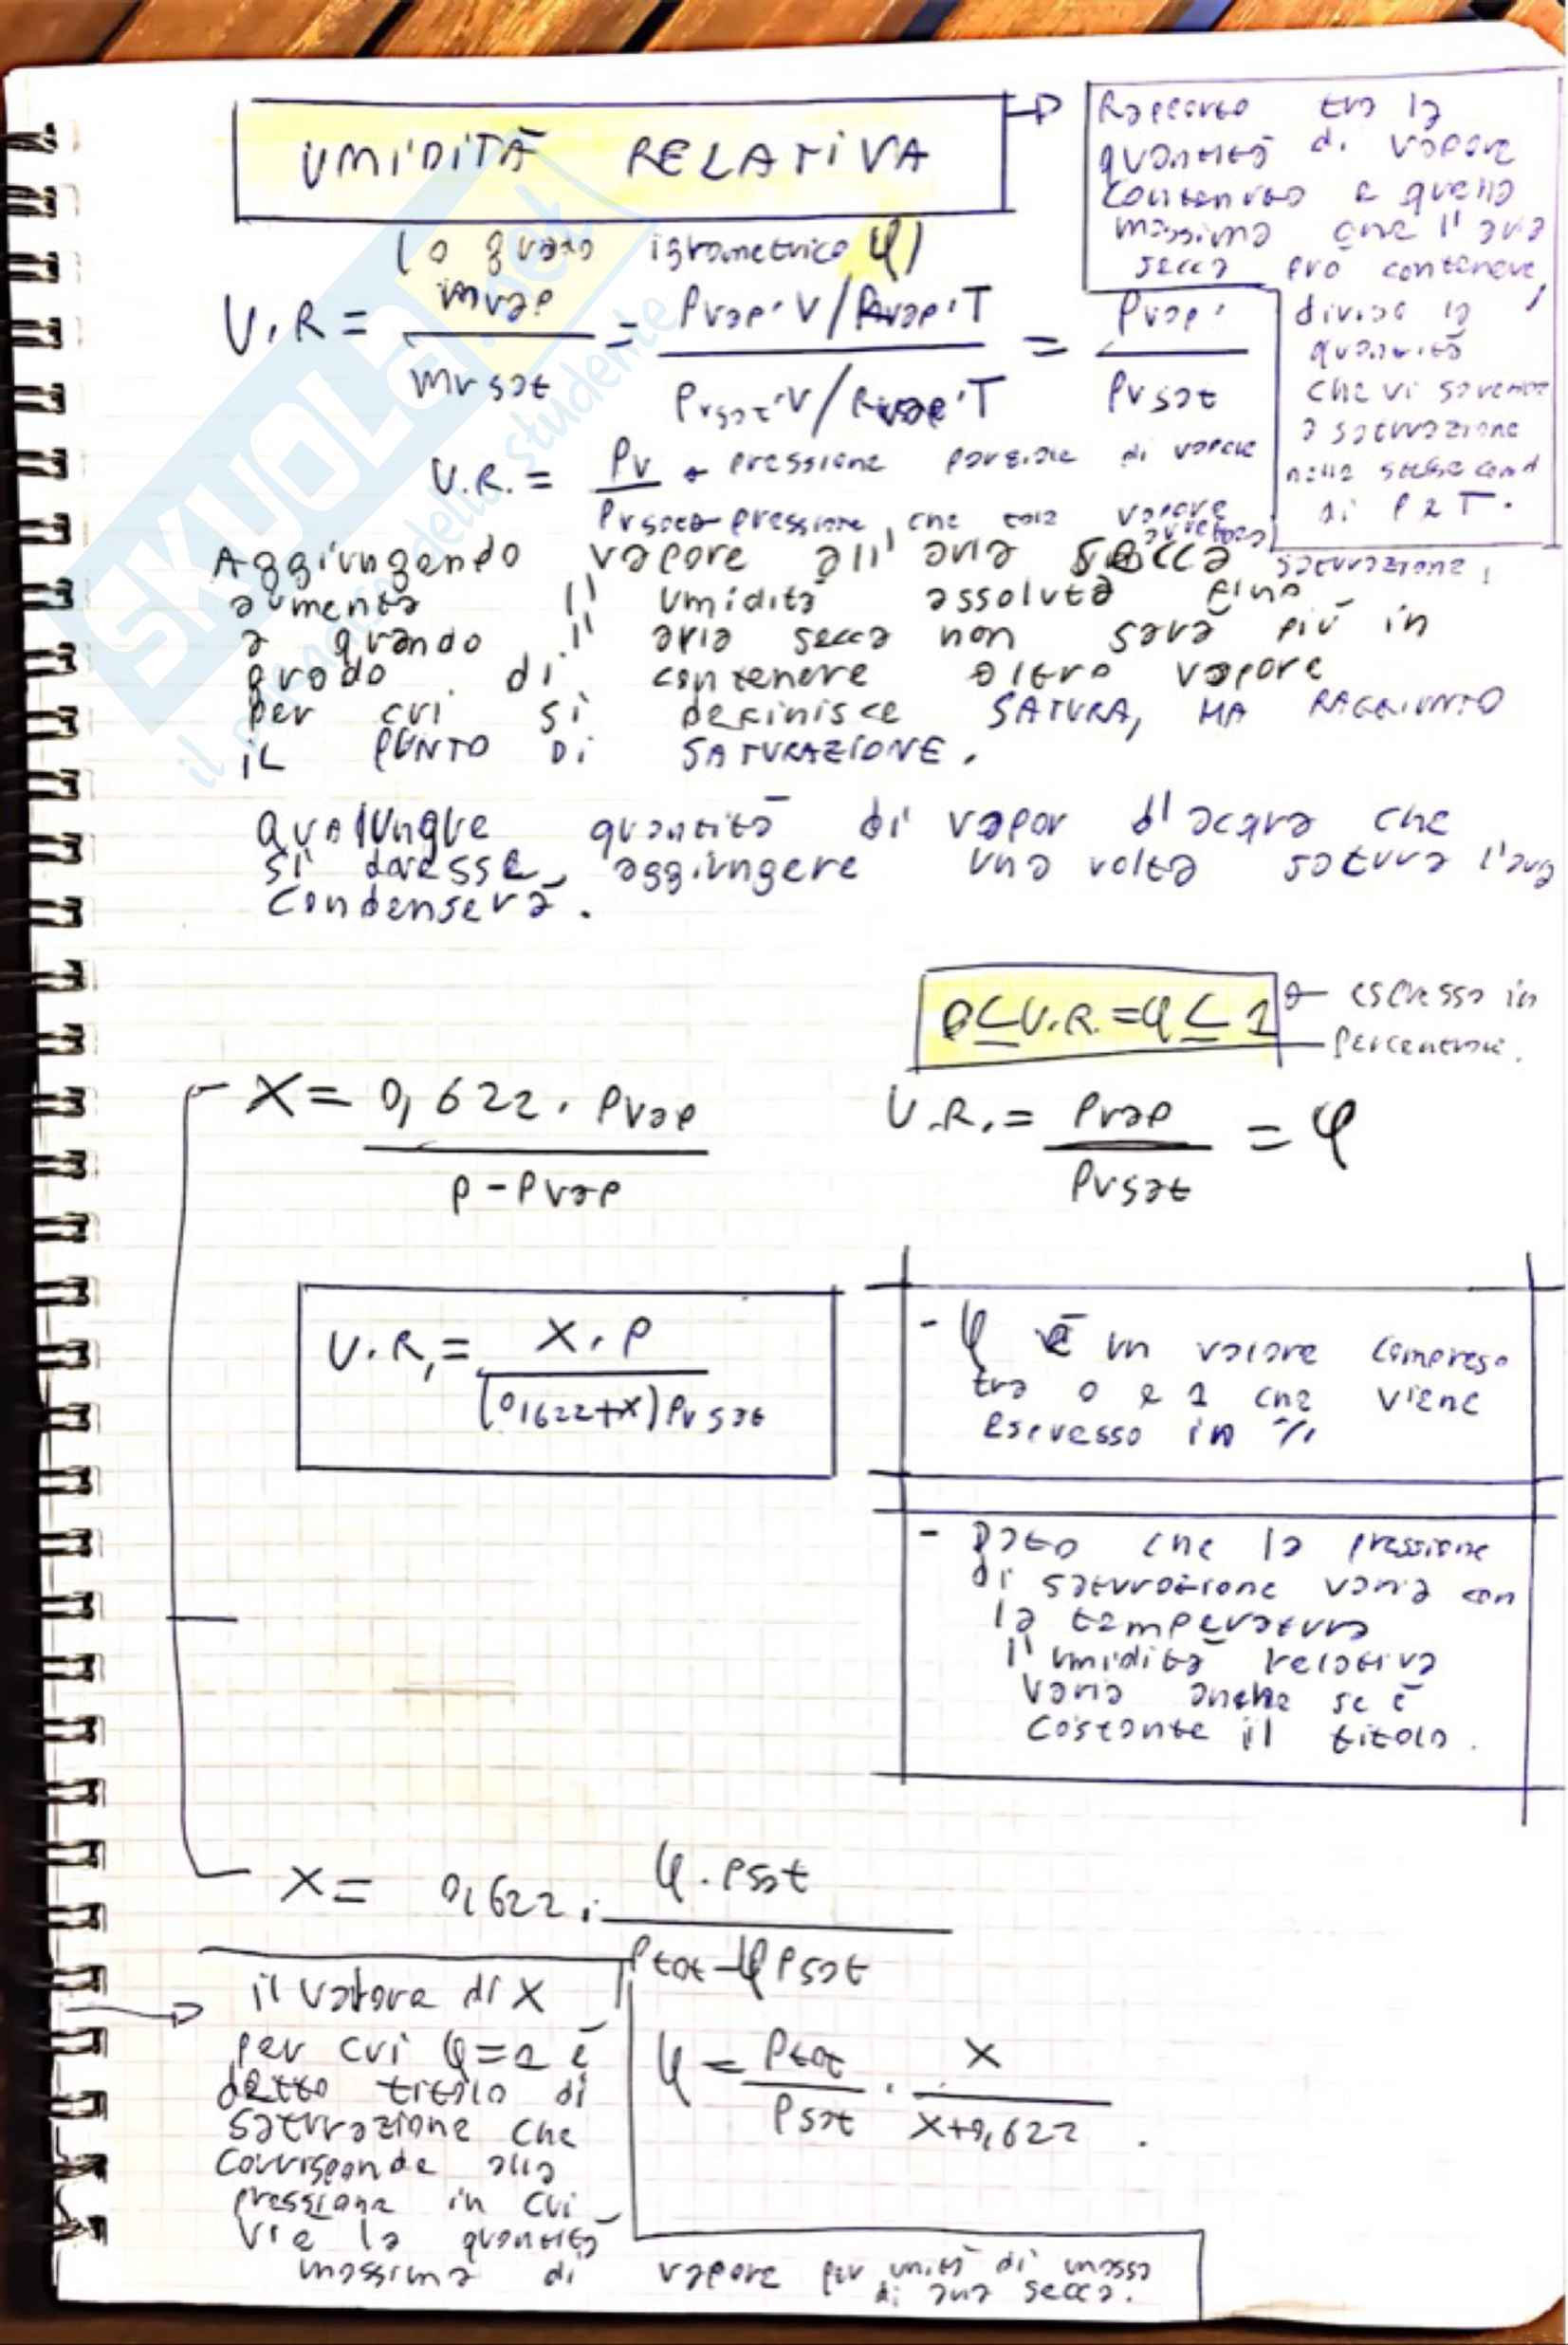 UMIDITÀ RELATIVA
(o grado igrometrico φ)
Rapporto tra la
quantità di vapore
contenuto e quella
massima che l'aria
secca può contenere,
divisa la
quantità
che vi sarebbe
a saturazione
nelle stesse cond
di P e T.
U.R = mvap / mvsat = Pvap·V/Rvap·T / Pvsat·V/Rvap·T = Pvap / Pvsat
U.R. = Pv → pressione parziale di vapore
Pvsat → pressione che tale vapore avrebbe a saturazione,
Aggiungendo vapore all'aria secca
aumenta l'umidità assoluta fino
a quando l'aria secca non sarà più in
grado di contenere altro vapore
per cui si definisce SATURA, HA RAGGIUNTO
IL PUNTO DI SATURAZIONE.
Qualunque quantità di vapor d'acqua che
si dovesse aggiungere una volta satura l'aria
condenserà.
0≤U.R.=φ≤1 espresso in
percentuale.
X = 0,622 · Pvap / P-Pvap
U.R. = Pvap / Pvsat = φ
U.R. = X·P / (0,622+X) Pvsat
- φ è un valore compreso
tra 0 e 1 che viene
espresso in %
- Dato che la pressione
di saturazione varia con
la temperatura
l'umidità relativa
varia anche se è
costante il titolo.
X = 0,622 · φ·Psat / Ptot-φPsat
il valore di X
per cui φ=1 è
detto titolo di
saturazione che
corrisponde alla
pressione in cui
vi è la quantità
massima di vapore per unità di massa
di aria secca.
φ = Ptot / Psat · X / X+0,622.
SKUOLA.net
il paradiso dello studente